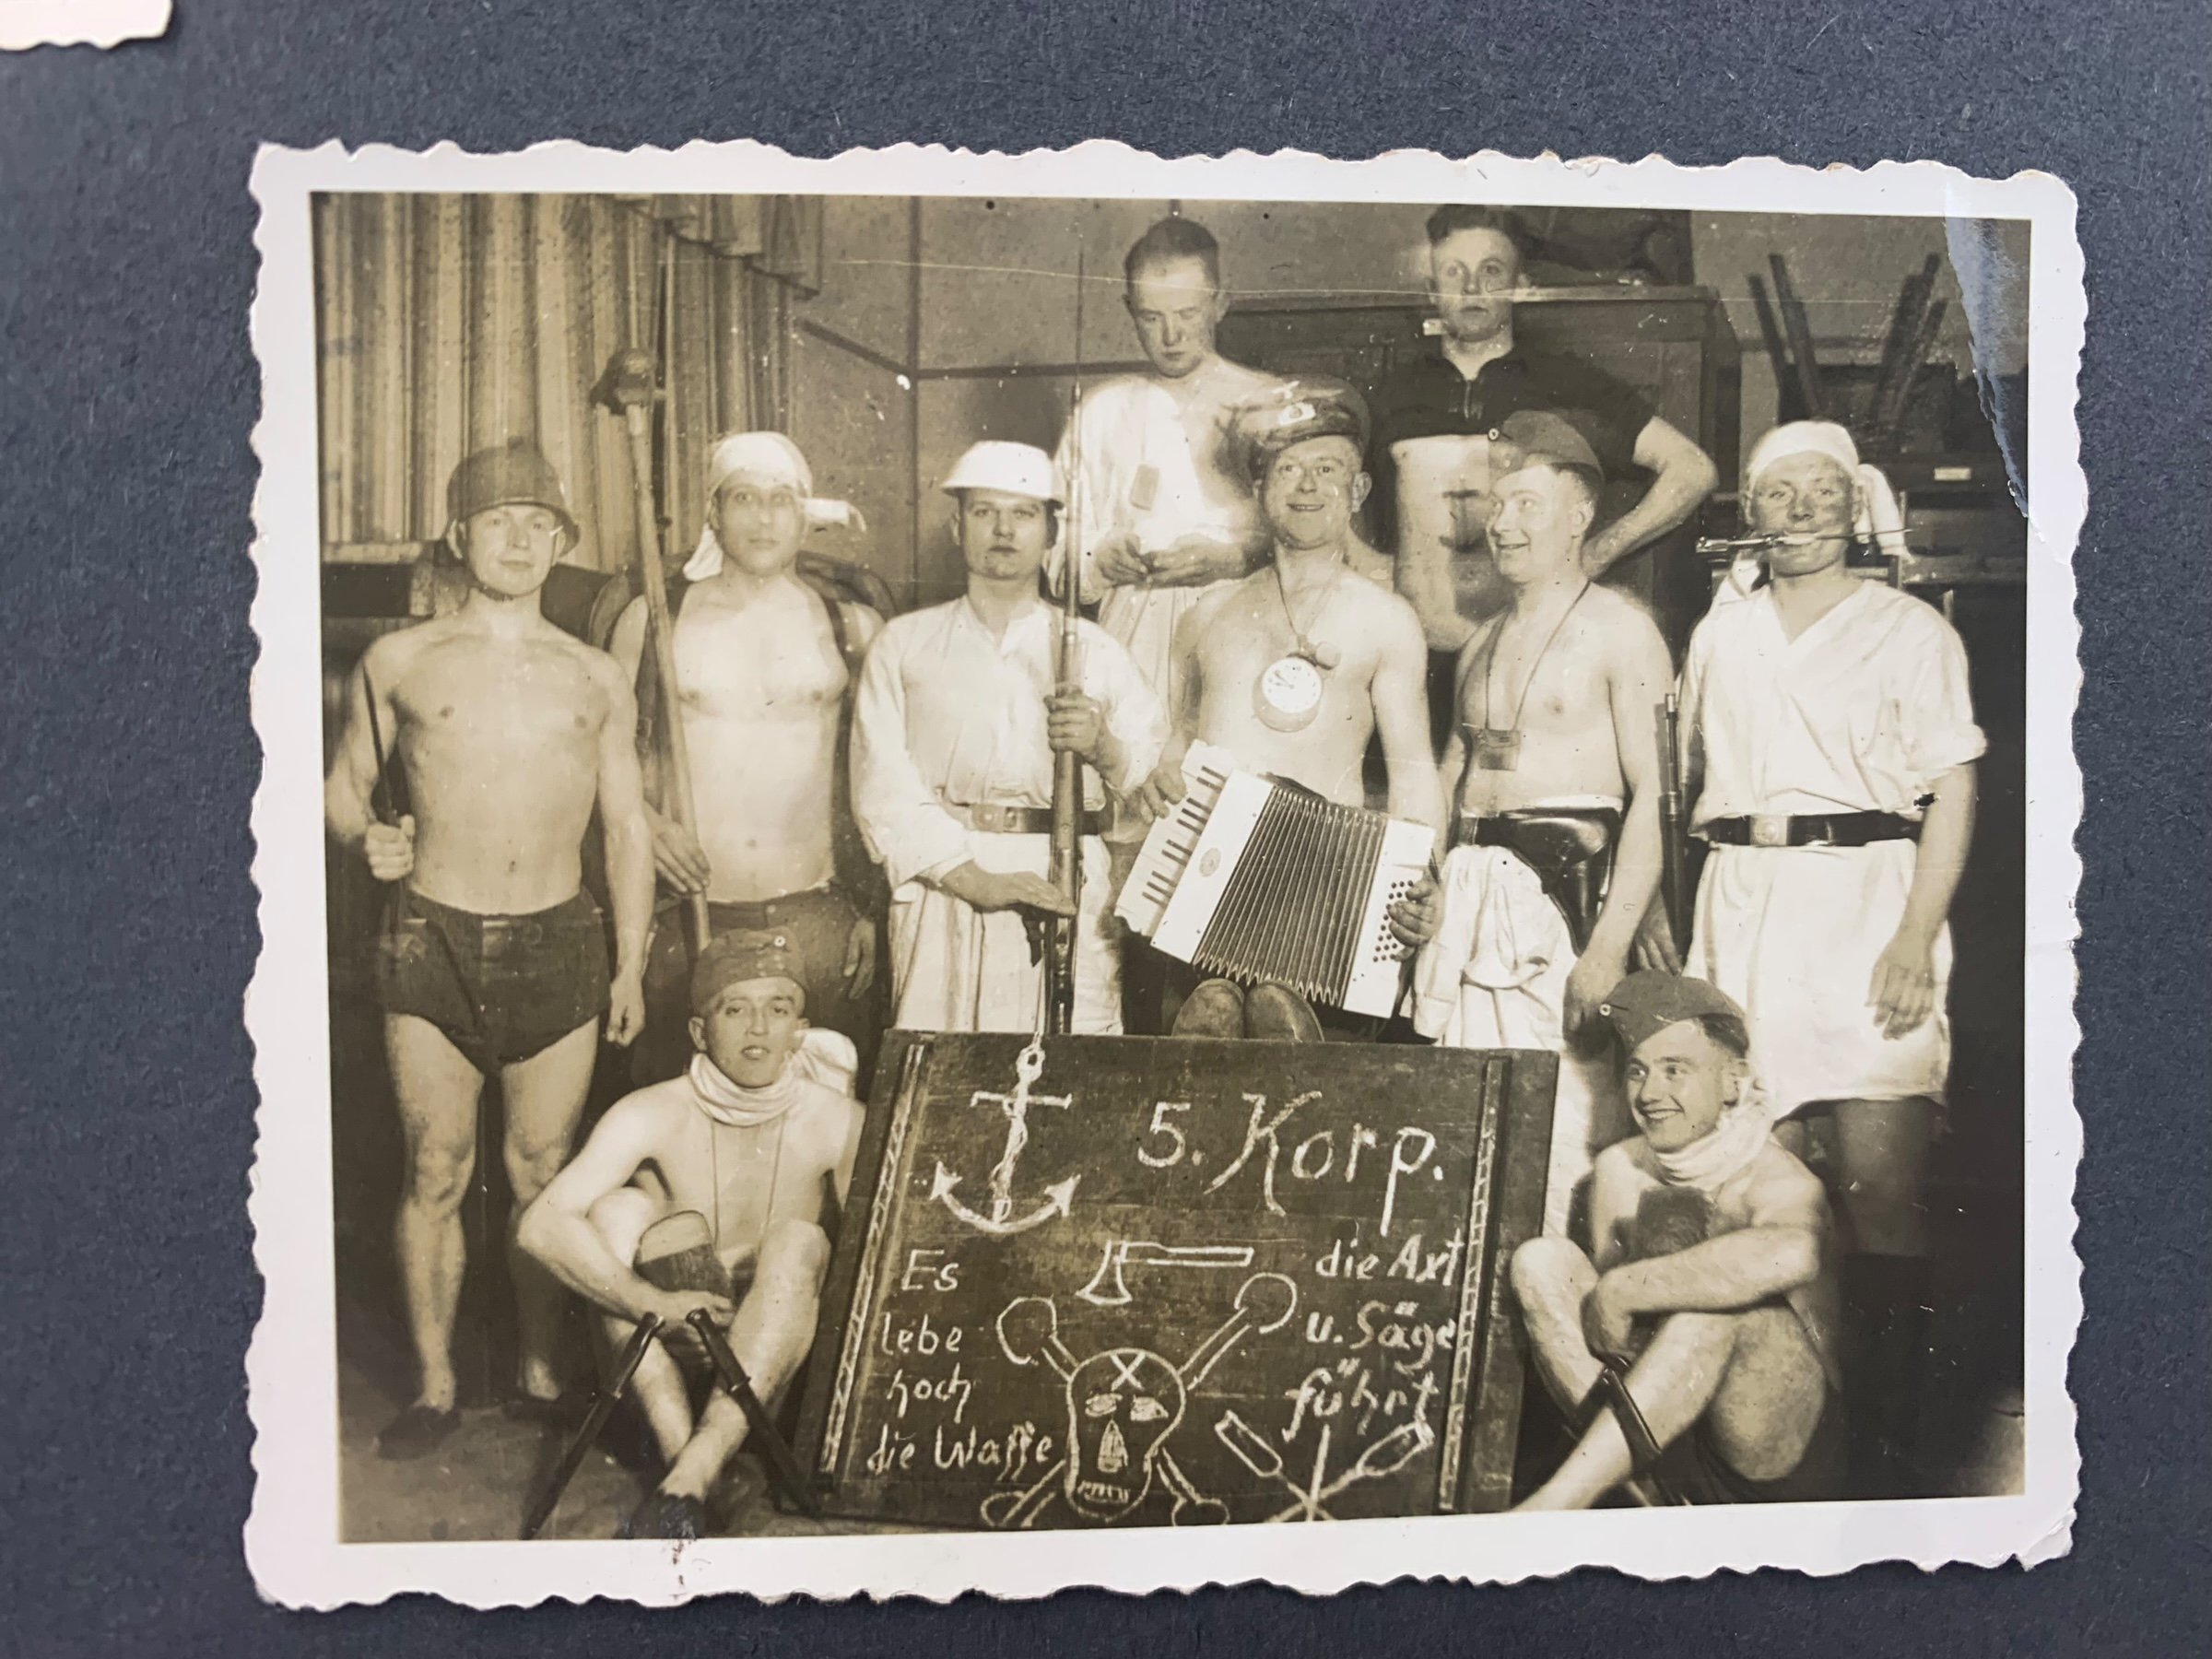 5. Korp.
Es
lebe
hoch
die Waffe
die Axt
u. Säge
führt